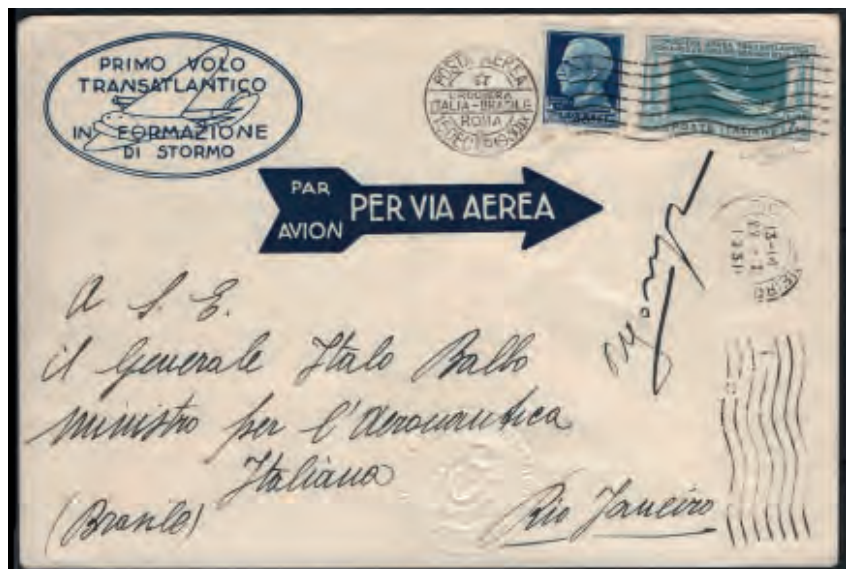 PRIMO VOLO
TRANSATLANTICO
IN FORMAZIONE
DI STORMO
POSTA AEREA
CROCIERA
ITALIA-BRASILE
ROMA
PAR
AVION
PER VIA AEREA
A S. E.
il Generale Italo Balbo
ministro per l'Aeronautica
Italiana
(Brasile)
Rio Janeiro